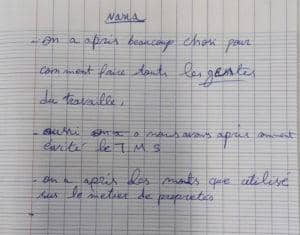 NANA
- on a apris beaucoup chosi pour
comment faire touts les gestes
du travaille,
- aussi on a nous avons apris comment
évité le T.M.S
- on a apris des mots que utilisé
sur le métier de propretés